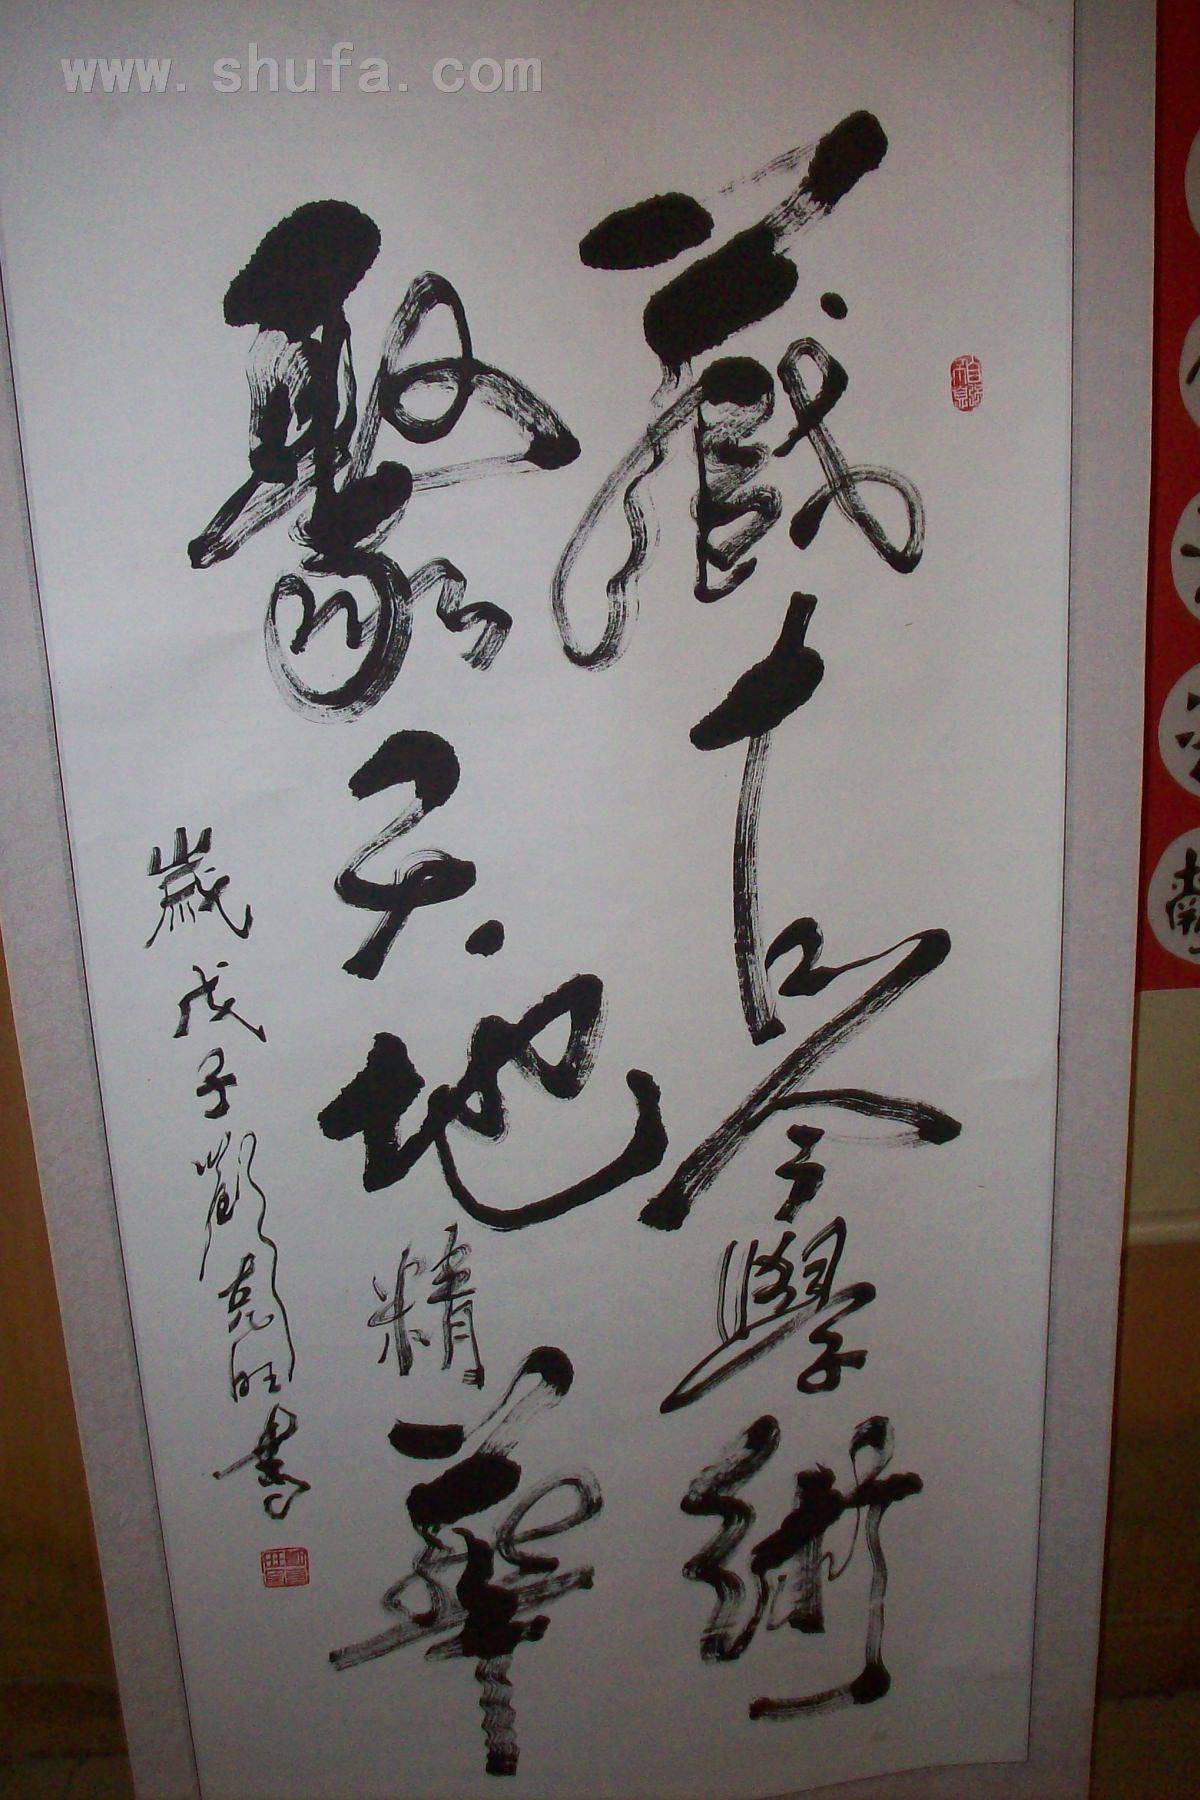 www.shufa.com
藏古今學術
聚天地精華
歲戊子劉克旺書